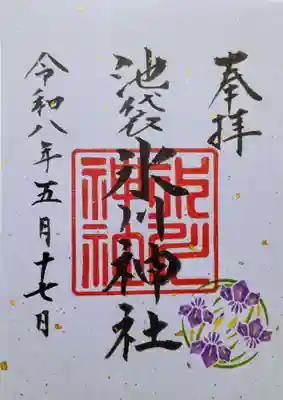 奉拝
池袋氷川神社
令和八年五月十七日